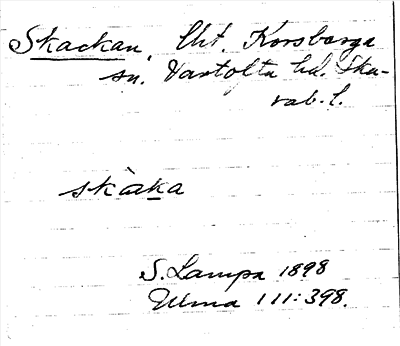 Skackan, lht. Korsberga
sn. Vartofta hd. Ska-
rab. l.
skàka
S. Lampa 1898
Ulma 111:398.